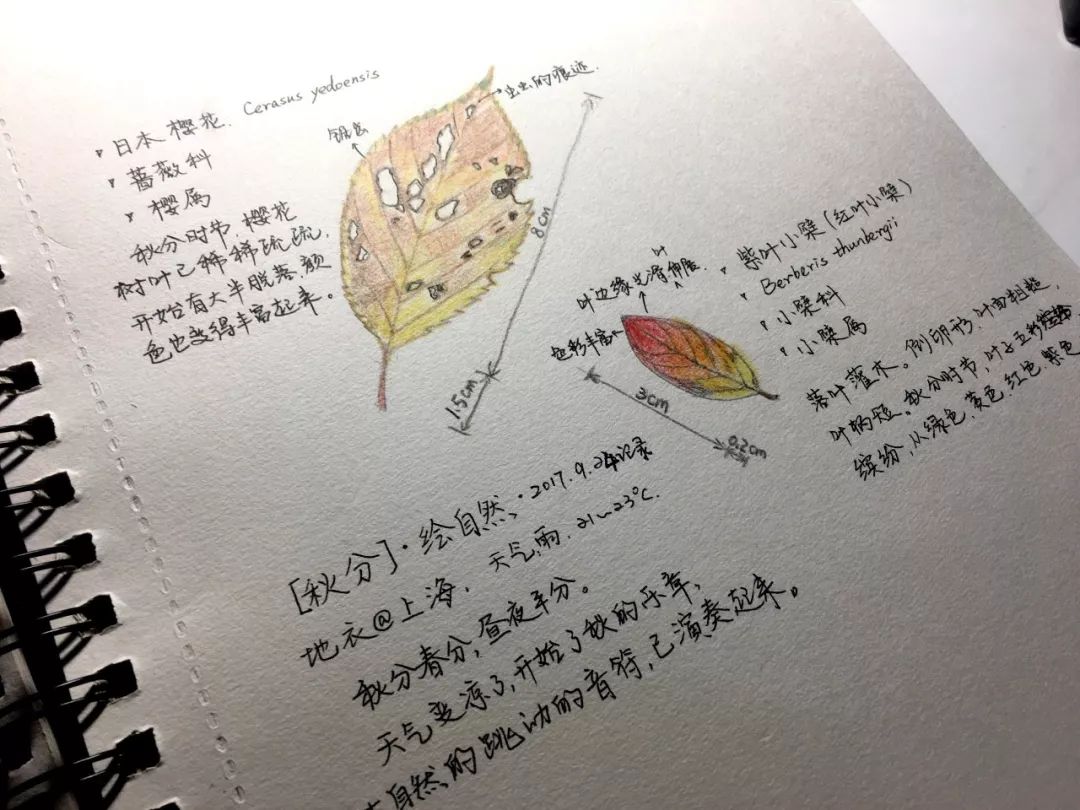 日本樱花. Cerasus yedoensis
蔷薇科
樱属
秋分时节,樱花
树叶已稀稀疏疏,
开始有大半脱落,颜
色也变得丰富起来。
锯齿
虫虫的痕迹.
8cm
1.5cm
叶边缘光滑伸展.
叶
色彩丰富
3cm
0.2cm
紫叶小檗(红叶小檗)
Berberis thunbergii
小檗科
小檗属
落叶灌木。倒卵形.叶面粗糙,
叶柄短。秋分时节,叶子五彩
缤纷,从绿色,黄色.红色.紫色
[秋分]·绘自然·2017.9.24记录
地衣@上海. 天气,雨. 21~23℃.
秋分春分,昼夜平分。
天气变凉了,开始了秋的乐章,
自然的跳动的音符,已演奏起来。